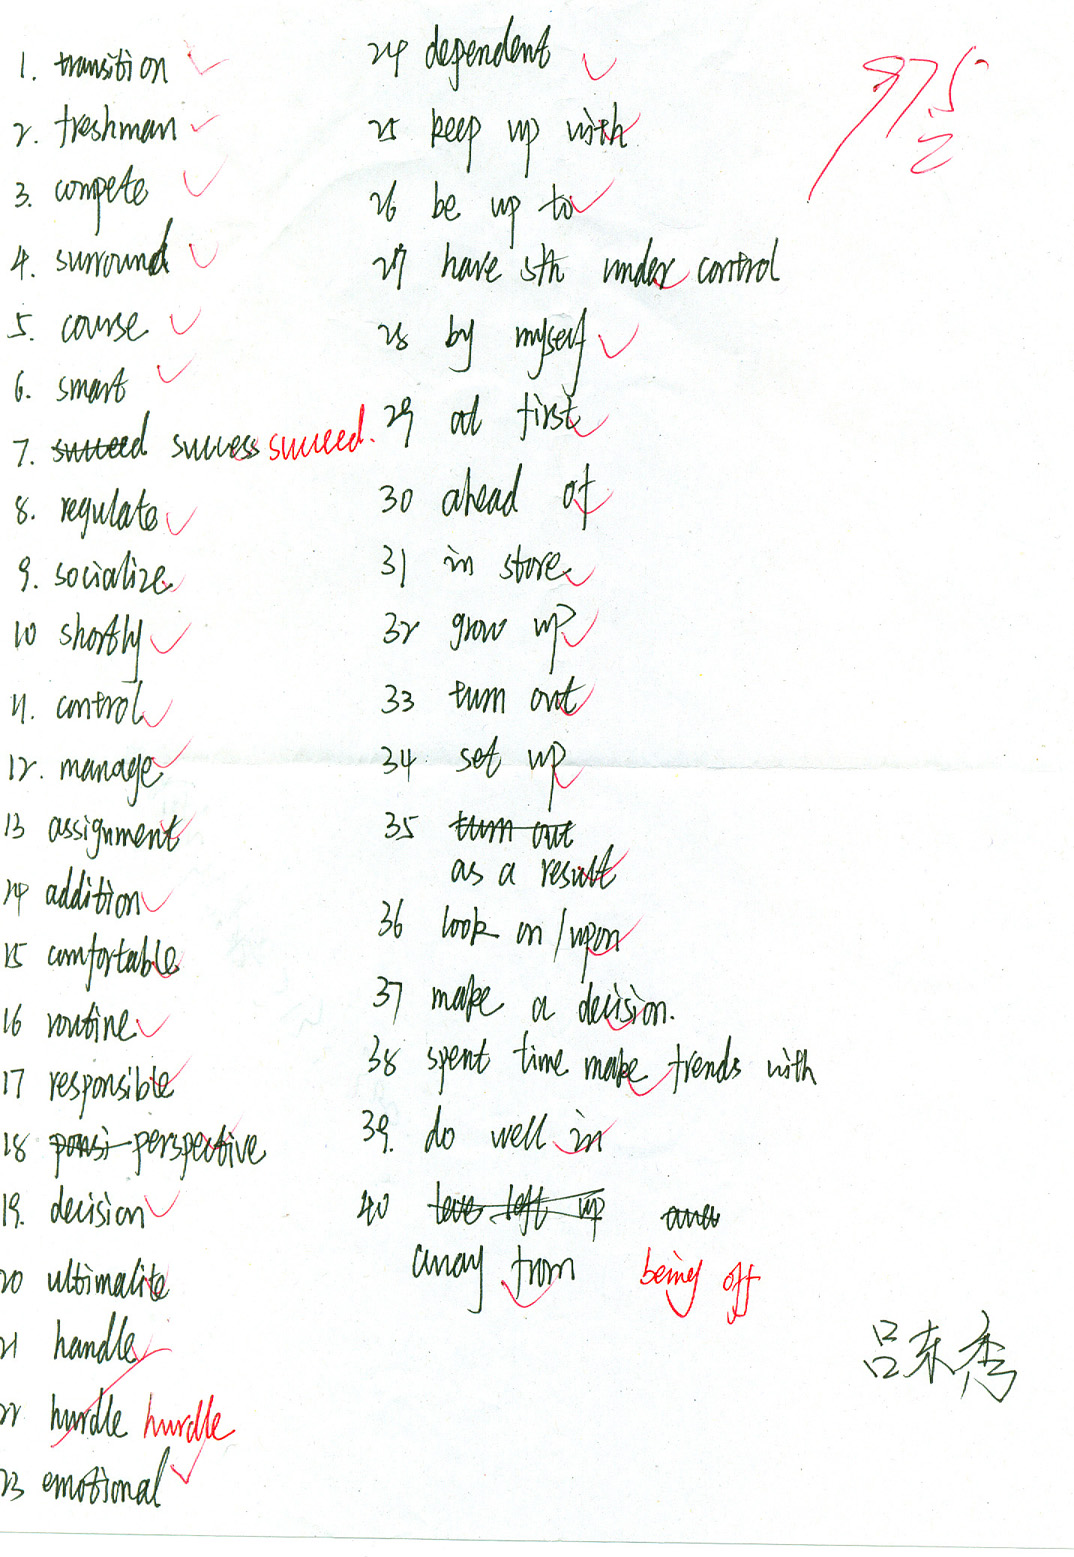 1. transition
2. freshman
3. compete
4. surround
5. course
6. smart
7. succeed success succeed.
8. regulate
9. socialize
10 shortly
11. control
12. manage
13 assignment
14 addition
15 comfortable
16 routine
17 responsible
18 ponsi perspective
19. decision
20 ultimalite
21 handle
22 hurdle hurdle
23 emotional
24 dependent
25 keep up with
26 be up to
27 have sth under control
28 by myself
29 at first
30 ahead of
31 in store
32 grow up
33 turn out
34 set up
35 turn out
as a result
36 look on/upon
37 make a decision.
38 spent time make frends with
39. do well in
40 left up
away from being off
97.5
2
吕来秀